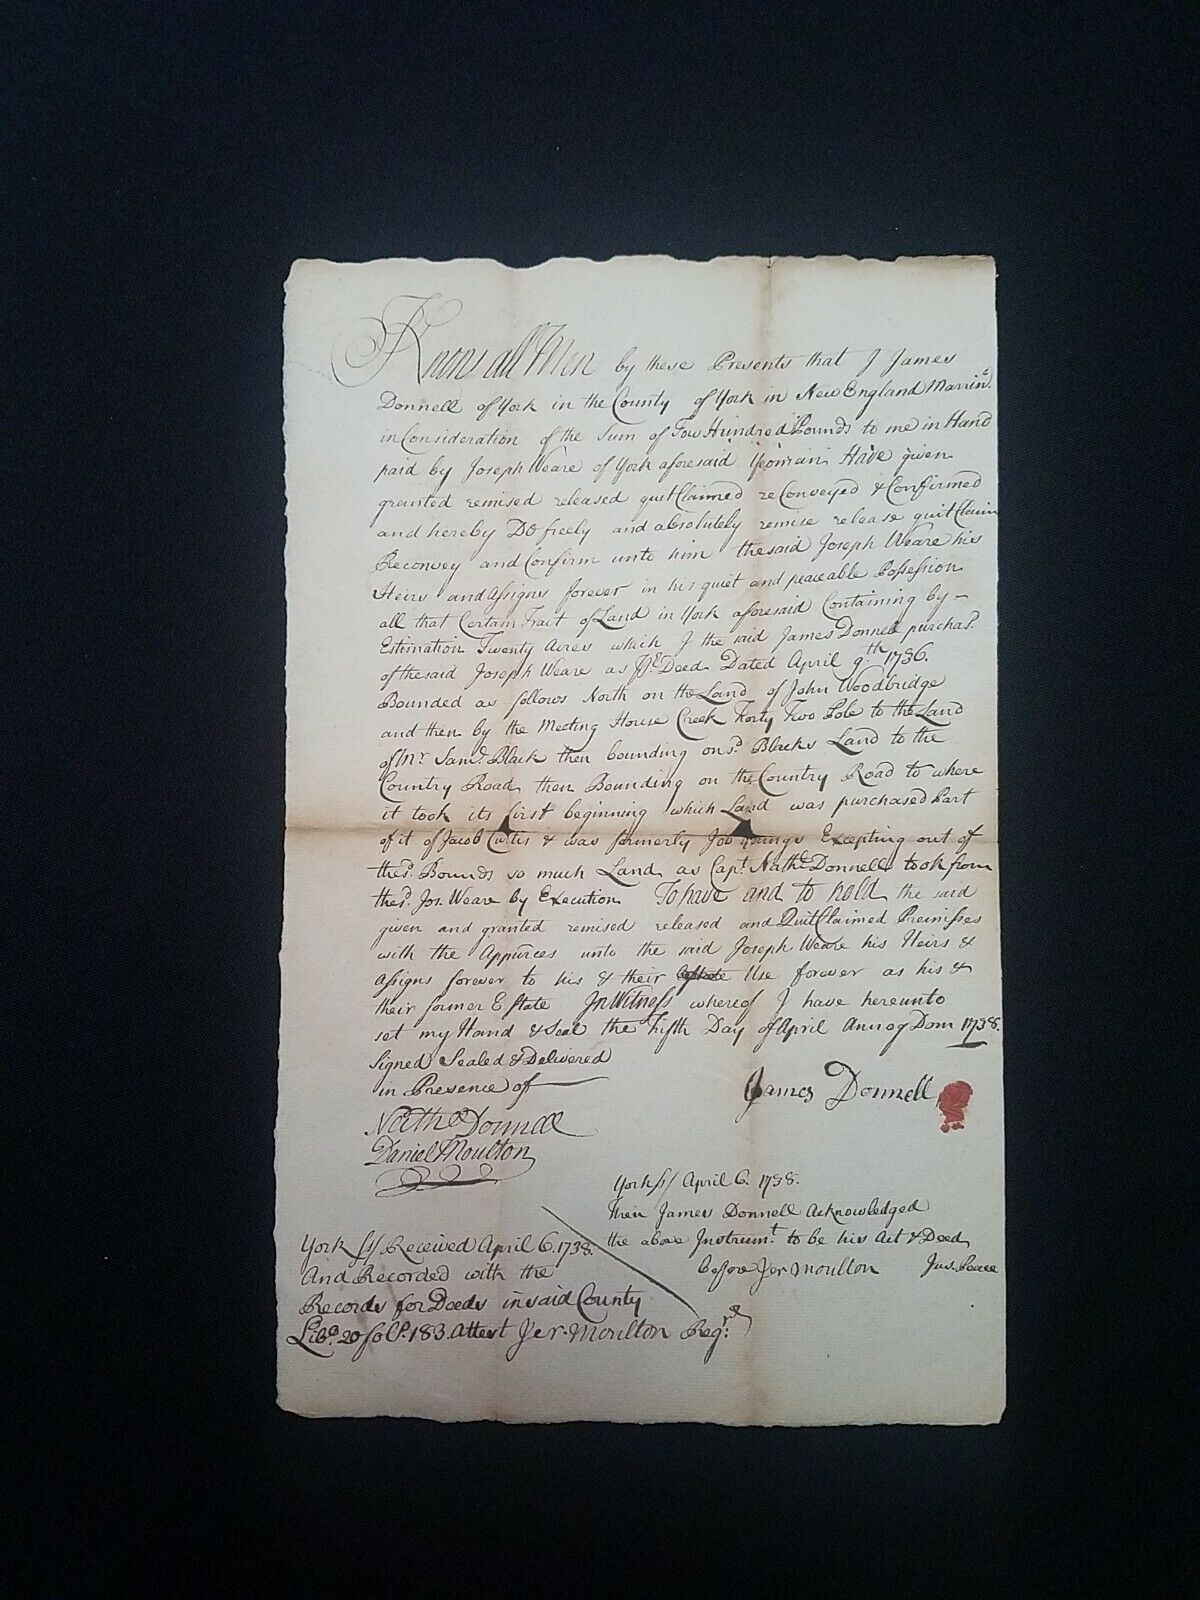 Know all Men by these Presents that I James
Donnell of York in the County of York in New England Marrinr.
in Consideration of the Sum of Fow Hundred Pounds to me in Hand
paid by Joseph Weare of York aforesaid Yeoman Have given
granted remised released quitClaimed reConveyed & Confirmed
and hereby Do freely and absolutely remise release quitClaim
Reconvey and Confirm unto him the said Joseph Weare his
Heirs and Assigns forever in his quiet and peaceable Possession
all that Certain Tract of Land in York aforesaid Containing by -
Estimation Twenty Acres which I the said James Donnell purchasd.
of the said Joseph Weare as Pr. Deed Dated April 9.th 1736.
Bounded as follows North on the Land of John Woodbridge
and then by the Meeting House Creek Forty Two Pole to the Land
of Mr. Saml. Black then bounding on sd. Blacks Land to the
Country Road then Bounding on the Country Road to where
it took its first beginning which Land was purchased Part
of it of Jacob Curtis & was formerly Job Youngs Excepting out of
the sd. Bounds so much Land as Capt. Nathl. Donnell took from
the sd. Jos. Weare by Execution To have and to hold the said
given and granted remised released and QuitClaimed Premisses
with the Appurces unto the said Joseph Weare his Heirs &
Assigns forever to his & their Use forever as his &
their former Estate In Witness whereof I have hereunto
set my Hand & Seal the Fifth Day of April Annoq Dom 1738.
Signed Sealed & Delivered
in Presence of
James Donnell
Nathll Donnell
Daniel Moulton
York ss/ April 6. 1738.
Then James Donnell Acknowledged
the above Instrumt. to be his Act & Deed
before Jer Moulton Jus. Peace
York ss/ Received April 6. 1738.
And Recorded with the
Records for Deeds in said County
Libo. 20 folo. 183. Attest Jer. Moulton Regr.